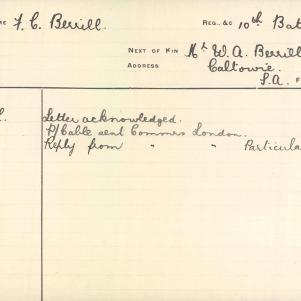 ME F. C. Berrill. REG., &C 10th Bat
NEXT OF KIN Mr W. A. Berrill
ADDRESS Caltowie.
S.A. F
Letter acknowledged.
P/Cable sent Commrs London.
Reply from " " Particula